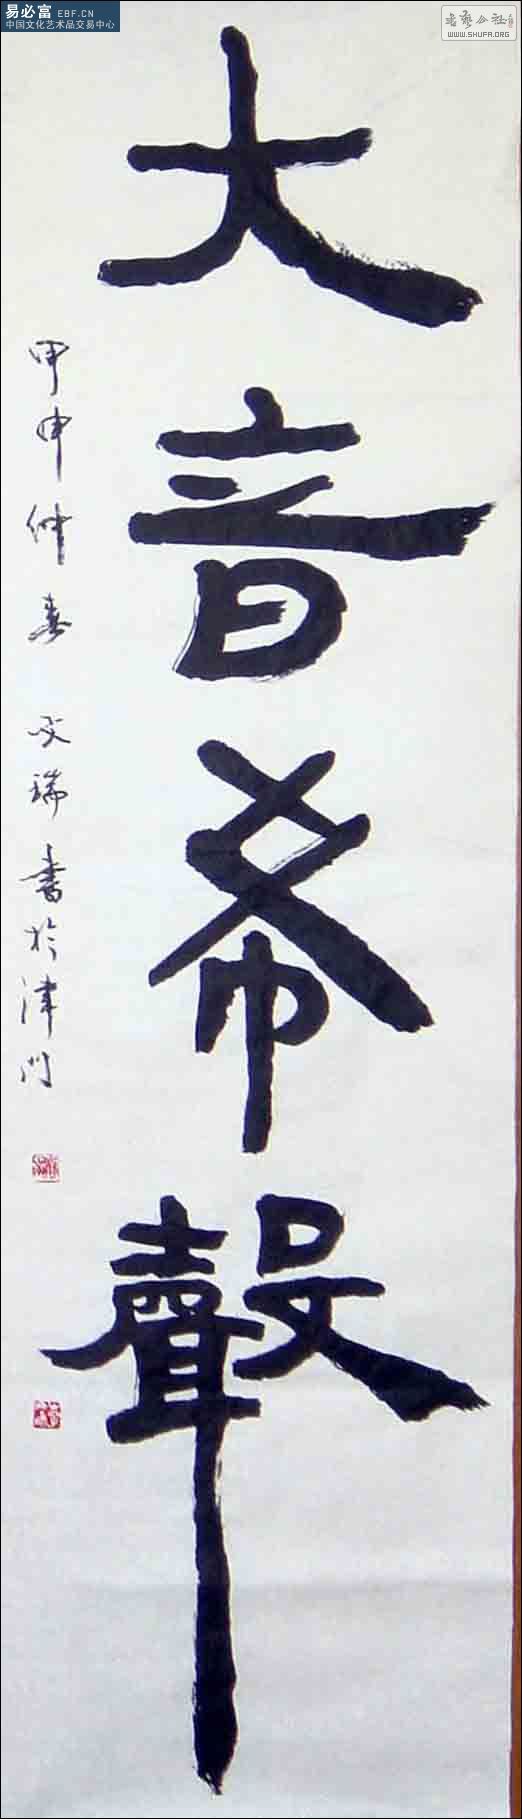 易必富 EBF.CN
中国文化艺术品交易中心
书艺公社
WWW.SHUFA.ORG
大音希聲
甲申仲春 文瑞書於津门